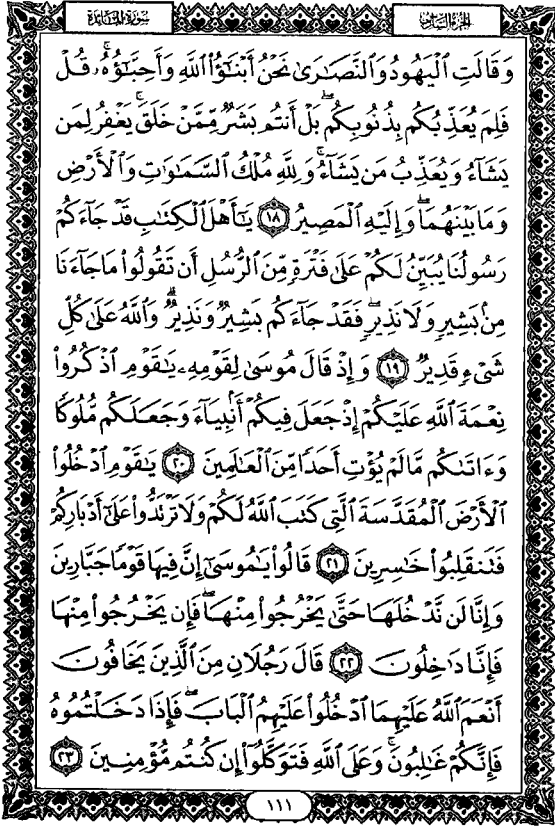 الجزء السادس
سورة المائدة
وَقَالَتِ ٱلۡيَهُودُ وَٱلنَّصَـٰرَىٰ نَحۡنُ أَبۡنَـٰٓؤُاْ ٱللَّهِ وَأَحِبَّـٰٓؤُهُۥۚ قُلۡ
فَلِمَ يُعَذِّبُكُم بِذُنُوبِكُمۖ بَلۡ أَنتُم بَشَرٞ مِّمَّنۡ خَلَقَۚ يَغۡفِرُ لِمَن
يَشَآءُ وَيُعَذِّبُ مَن يَشَآءُۚ وَلِلَّهِ مُلۡكُ ٱلسَّمَـٰوَٰتِ وَٱلۡأَرۡضِ
وَمَا بَيۡنَهُمَاۖ وَإِلَيۡهِ ٱلۡمَصِيرُ ١٨ يَـٰٓأَهۡلَ ٱلۡكِتَـٰبِ قَدۡ جَآءَكُمۡ
رَسُولُنَا يُبَيِّنُ لَكُمۡ عَلَىٰ فَتۡرَةٖ مِّنَ ٱلرُّسُلِ أَن تَقُولُواْ مَا جَآءَنَا
مِنۢ بَشِيرٖ وَلَا نَذِيرٖۖ فَقَدۡ جَآءَكُم بَشِيرٞ وَنَذِيرٞۗ وَٱللَّهُ عَلَىٰ كُلِّ
شَيۡءٖ قَدِيرٞ ١٩ وَإِذۡ قَالَ مُوسَىٰ لِقَوۡمِهِۦ يَـٰقَوۡمِ ٱذۡكُرُواْ
نِعۡمَةَ ٱللَّهِ عَلَيۡكُمۡ إِذۡ جَعَلَ فِيكُمۡ أَنۢبِيَآءَ وَجَعَلَكُم مُّلُوكٗا
وَءَاتَىٰكُم مَّا لَمۡ يُؤۡتِ أَحَدٗا مِّنَ ٱلۡعَـٰلَمِينَ ٢٠ يَـٰقَوۡمِ ٱدۡخُلُواْ
ٱلۡأَرۡضَ ٱلۡمُقَدَّسَةَ ٱلَّتِي كَتَبَ ٱللَّهُ لَكُمۡ وَلَا تَرۡتَدُّواْ عَلَىٰٓ أَدۡبَارِكُمۡ
فَتَنقَلِبُواْ خَـٰسِرِينَ ٢١ قَالُواْ يَـٰمُوسَىٰٓ إِنَّ فِيهَا قَوۡمٗا جَبَّارِينَ
وَإِنَّا لَن نَّدۡخُلَهَا حَتَّىٰ يَخۡرُجُواْ مِنۡهَاۖ فَإِن يَخۡرُجُواْ مِنۡهَا
فَإِنَّا دَٰخِلُونَ ٢٢ قَالَ رَجُلَانِ مِنَ ٱلَّذِينَ يَخَافُونَ
أَنۡعَمَ ٱللَّهُ عَلَيۡهِمَا ٱدۡخُلُواْ عَلَيۡهِمُ ٱلۡبَابَۖ فَإِذَا دَخَلۡتُمُوهُ
فَإِنَّكُمۡ غَـٰلِبُونَۚ وَعَلَى ٱللَّهِ فَتَوَكَّلُوٓاْ إِن كُنتُم مُّؤۡمِنِينَ ٢٣
١١١